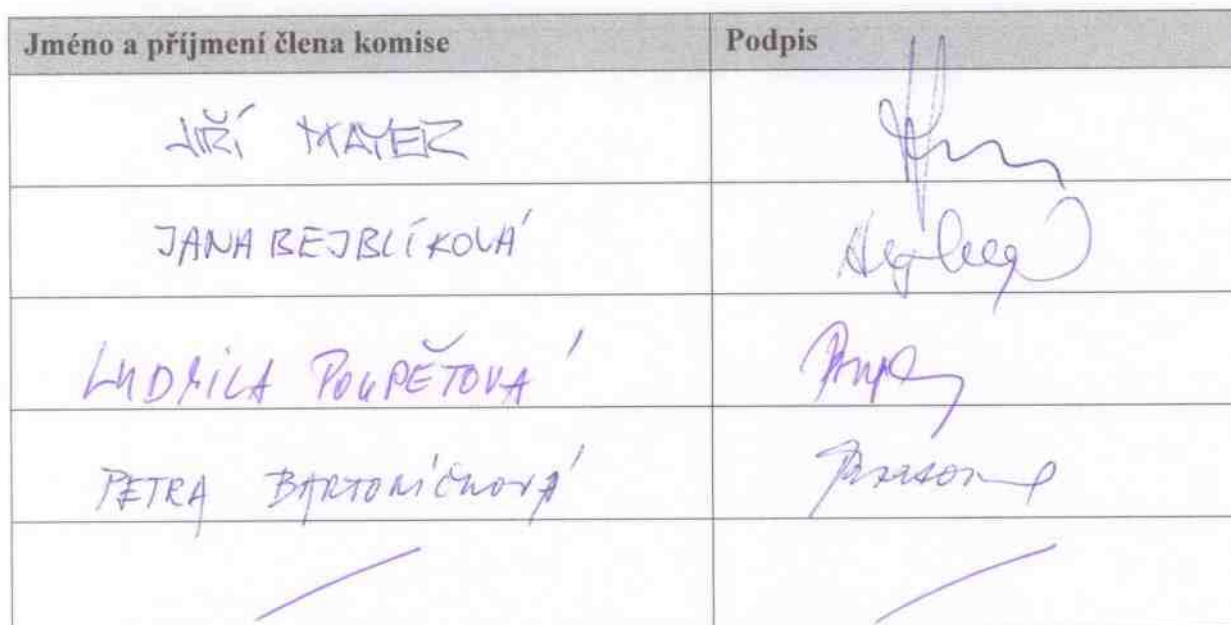 Jméno a příjmení člena komise Podpis
JIŘÍ MAYER
JANA BEJBLÍKOVÁ
LUDMILA POUPĚTOVÁ
PETRA BARTONÍČKOVÁ